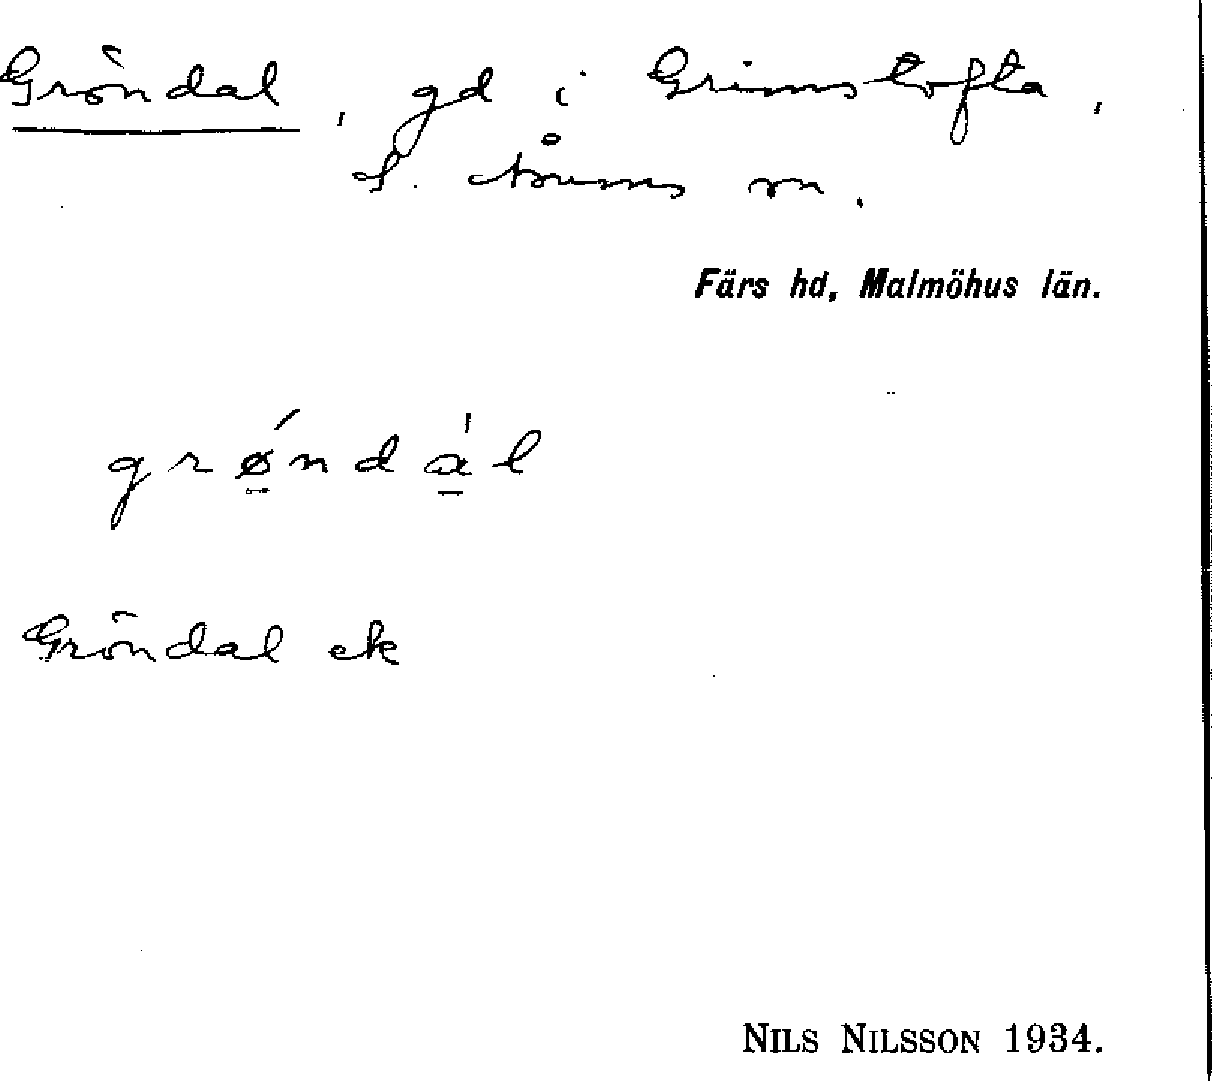 Gröndal, gd i Grimstofta,
S. Åsums sn.
Färs hd, Malmöhus län.
grǿ̱nda̱̍l
Gröndal ek
NILS NILSSON 1934.